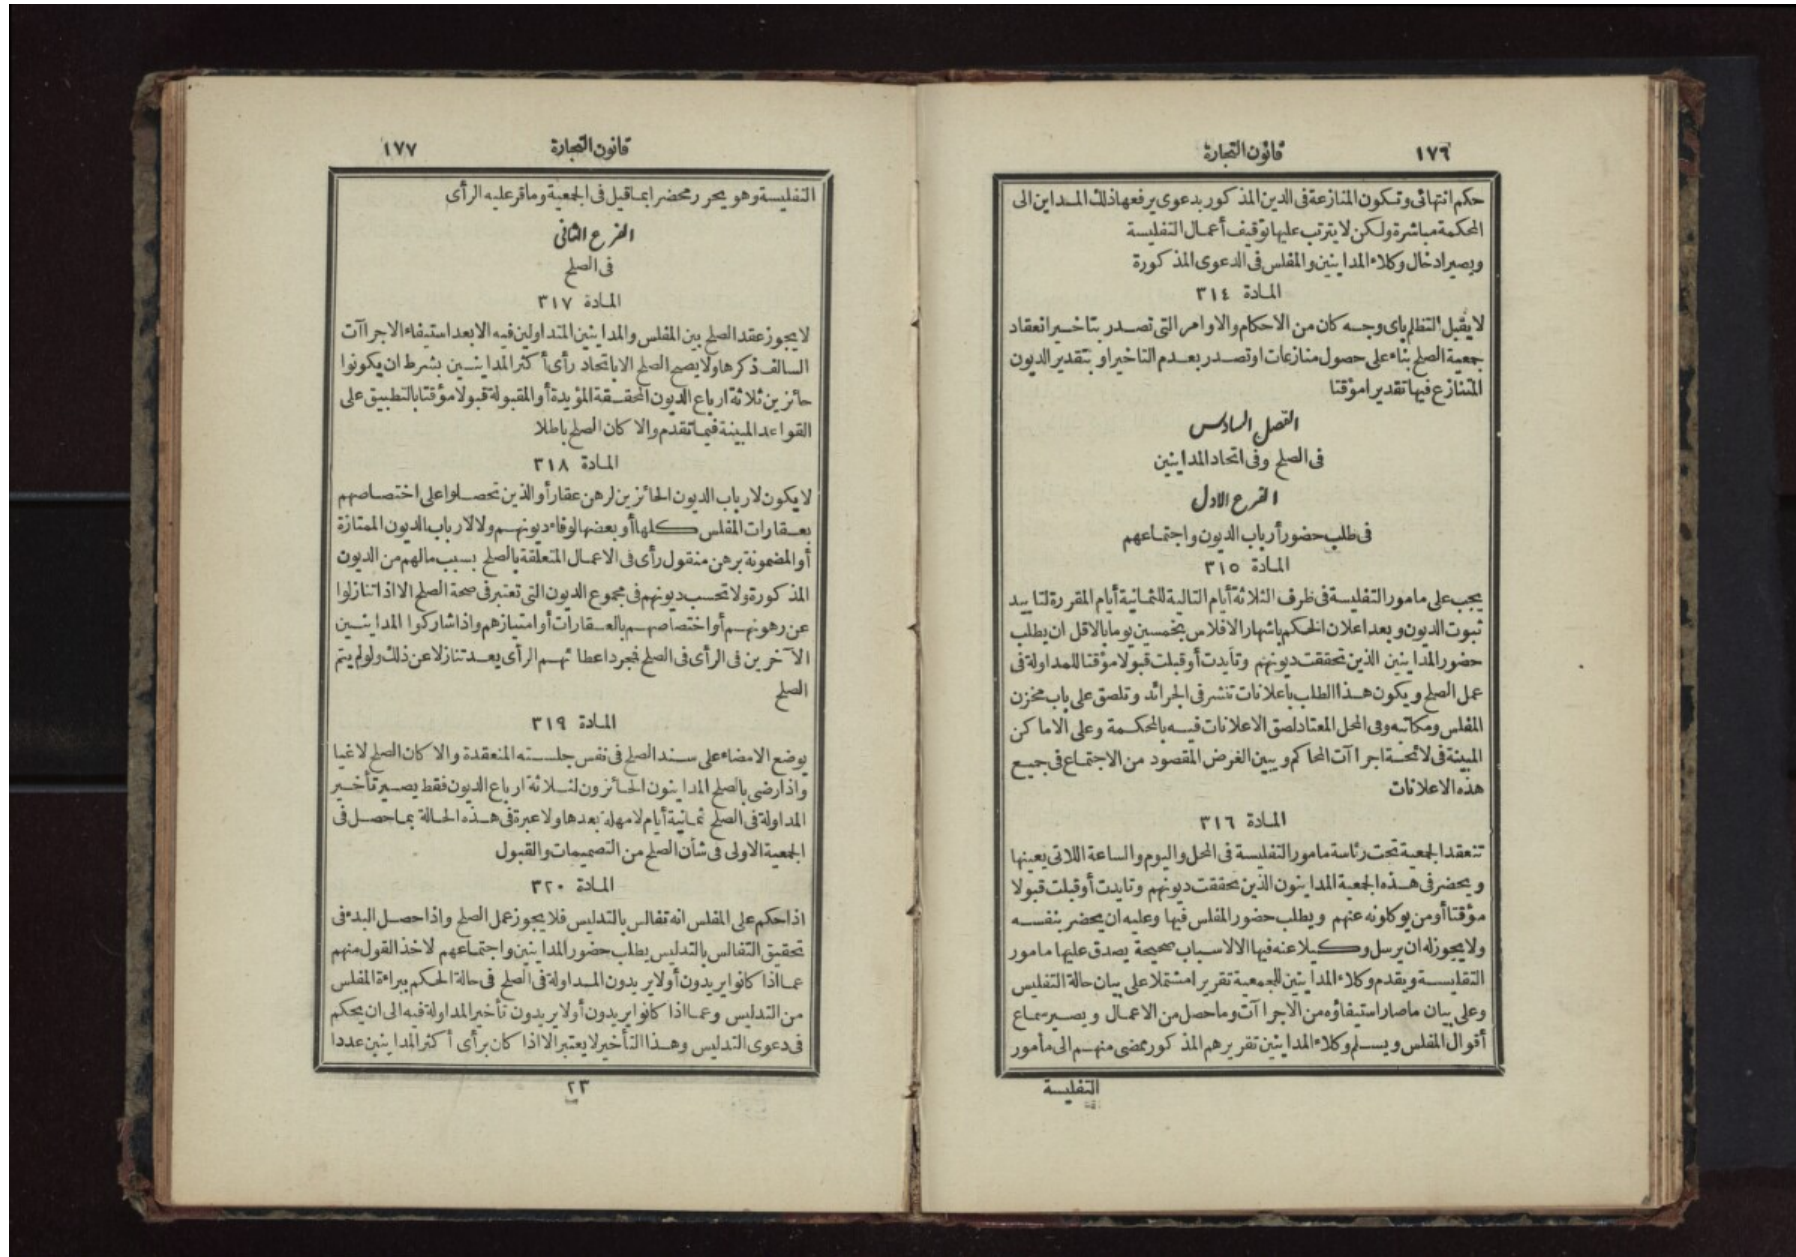 ١٧٦
قانون التجارة
حكم انتهائى وتكون المنازعة فى الدين المذكور بدعوى يرفعها ذلك المداين الى
المحكمة مباشرة ولكن لا يترتب عليها توقيف أعمال التفليسة
ويصير ادخال وكلاء المداينين والمفلس فى الدعوى المذكورة
المادة ٣١٤
لا يقبل التظلم باى وجه كان من الاحكام والاوامر التى تصدر بتاخير انعقاد
جمعية الصلح بناء على حصول منازعات او تصدر بعدم التاخير او بتقدير الديون
المتنازع فيها تقديرا مؤقتا
الفصل السادس
فى الصلح وفى اتحاد المداينين
الفرع الاول
فى طلب حضور أرباب الديون واجتماعهم
المادة ٣١٥
يجب على مامور التفليسة فى ظرف الثلاثة أيام التالية للثمانية أيام المقررة لتاييد
ثبوت الديون وبعد اعلان الحكم باشهار الافلاس بخمسين يوما بالاقل ان يطلب
حضور المداينين الذين تحققت ديونهم وتايدت أو قبلت قبولا مؤقتا للمداولة فى
عمل الصلح ويكون هذا الطلب باعلانات تنشر فى الجرائد وتلصق على باب مخزن
المفلس ومكاتبه وفى المحل المعتاد لصق الاعلانات فيه بالمحكمة وعلى الاماكن
المبينة فى لائحة اجراآت المحاكم ويبين الغرض المقصود من الاجتماع فى جميع
هذه الاعلانات
المادة ٣١٦
تنعقد الجمعية تحت رئاسة مامور التفليسة فى المحل واليوم والساعة اللاتى يعينها
ويحضر فى هذه الجمعية المداينون الذين تحققت ديونهم وتايدت أو قبلت قبولا
مؤقتا أو من يوكلونه عنهم ويطلب حضور المفلس فيها وعليه ان يحضر بنفسه
ولا يجوز له ان يرسل وكيلا عنه فيها الا لاسباب صحيحة يصدق عليها مامور
التفليسة ويقدم وكلاء المداينين للجمعية تقريرا مشتملا على بيان حالة التفليس
وعلى بيان ما صار استيفاؤه من الاجراآت وما حصل من الاعمال ويصير سماع
أقوال المفلس ويسلم وكلاء المداينين تقريرهم المذكور ممضى منهم الى مأمور
التفليسة
قانون التجارة
١٧٧
التفليسة وهو يحرر محضرا بما قيل فى الجمعية وما قر عليه الرأى
الفرع الثانى
فى الصلح
المادة ٣١٧
لا يجوز عقد الصلح بين المفلس والمداينين المتداولين فيه الا بعد استيفاء الاجراآت
السالف ذكرها ولا يصح الصلح الا باتحاد رأى أكثر المداينين بشرط ان يكونوا
حائزين ثلاثة ارباع الديون المحققة المؤيدة أو المقبولة قبولا مؤقتا بالتطبيق على
القواعد المبينة فيما تقدم والا كان الصلح باطلا
المادة ٣١٨
لا يكون لارباب الديون الحائزين لرهن عقار أو الذين تحصلوا على اختصاصهم
بعقارات المفلس كلها أو بعضها لوفاء ديونهم ولا لارباب الديون الممتازة
أو المضمونة برهن منقول رأى فى الاعمال المتعلقة بالصلح بسبب مالهم من الديون
المذكورة ولا تحسب ديونهم فى مجموع الديون التى تعتبر فى صحة الصلح الا اذا تنازلوا
عن رهونهم أو اختصاصهم بالعقارات أو امتيازهم واذا شاركوا المداينين
الآخرين فى الرأى فى الصلح فمجرد اعطائهم الرأى يعد تنازلا عن ذلك ولو لم يتم
الصلح
المادة ٣١٩
يوضع الامضاء على سند الصلح فى نفس جلسته المنعقدة والا كان الصلح لاغيا
واذا رضى بالصلح المداينون الحائزون لثلاثة ارباع الديون فقط يصير تأخير
المداولة فى الصلح ثمانية أيام لا مهلة بعدها ولا عبرة فى هذه الحالة بما حصل فى
الجمعية الاولى فى شأن الصلح من التصميمات والقبول
المادة ٣٢٠
اذا حكم على المفلس انه تفالس بالتدليس فلا يجوز عمل الصلح واذا حصل البدء فى
تحقيق التفالس بالتدليس يطلب حضور المداينين واجتماعهم لاخذ القول منهم
عما اذا كانوا يريدون أو لا يريدون المداولة فى الصلح فى حالة الحكم ببراءة المفلس
من التدليس وعما اذا كانوا يريدون أو لا يريدون تأخير المداولة فيه الى ان يحكم
فى دعوى التدليس وهذا التأخير لا يعتبر الا اذا كان برأى أكثر المداينين عددا
٢٣